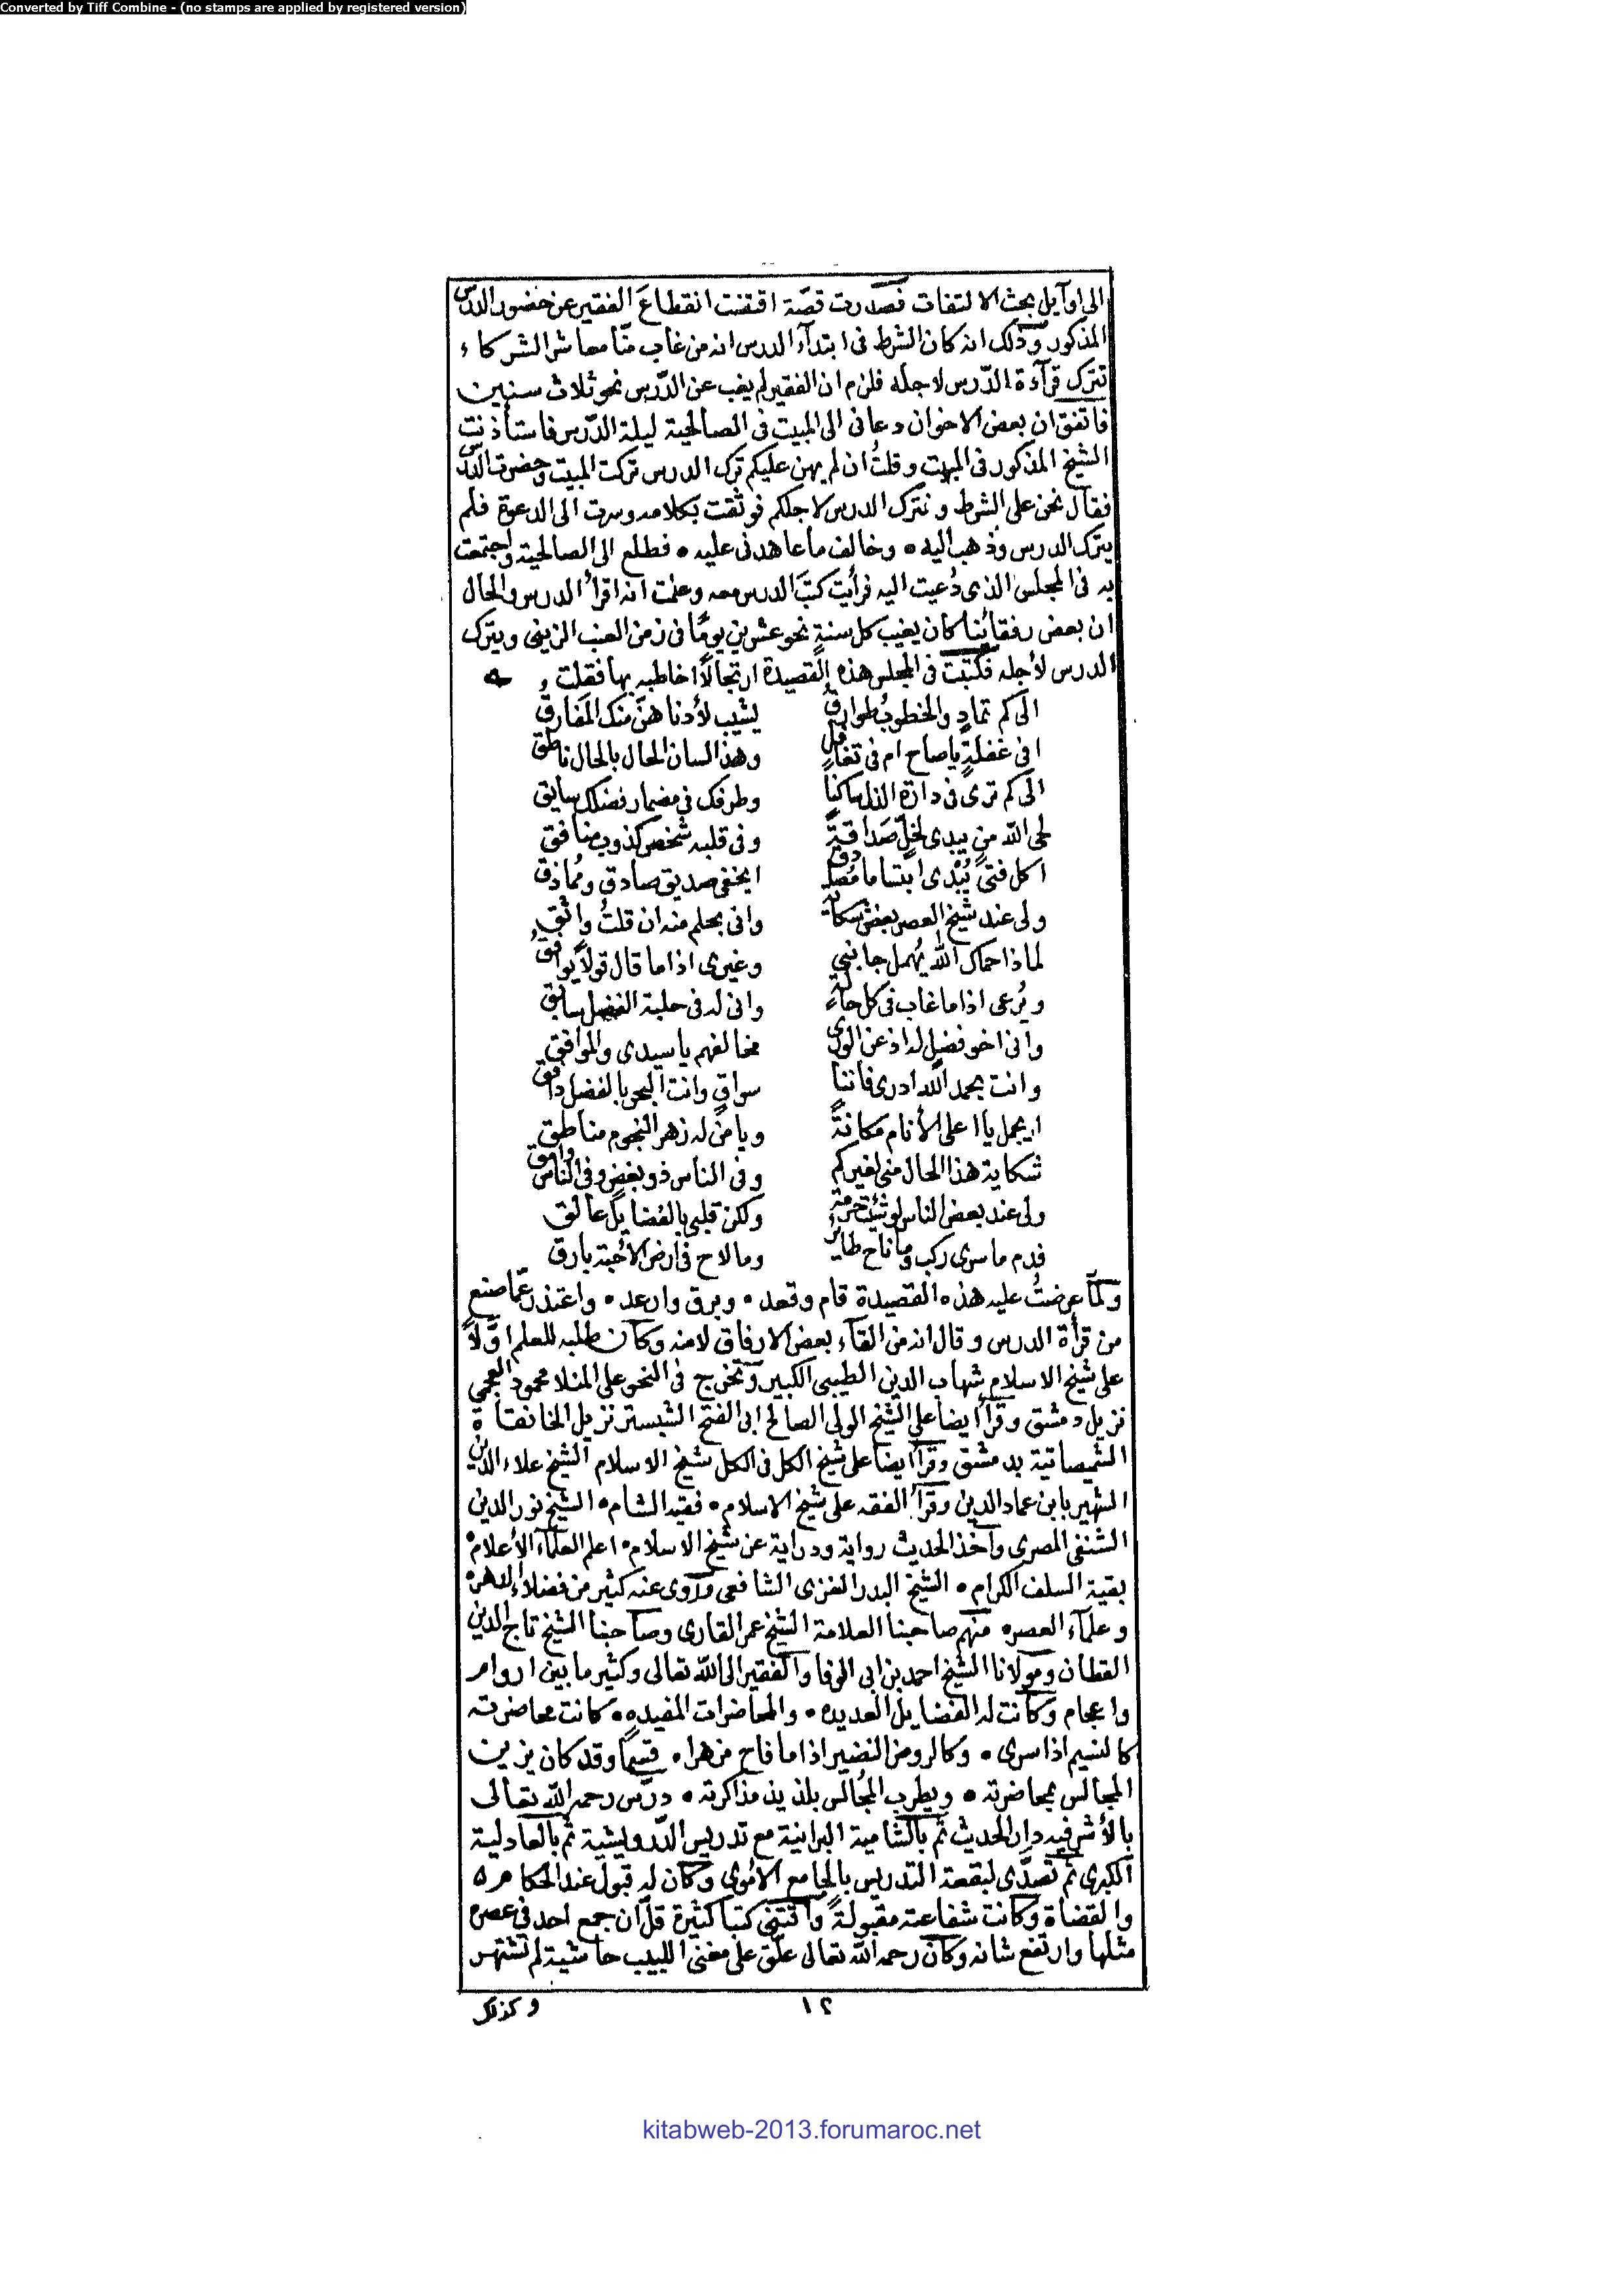 Converted by Tiff Combine - (no stamps are applied by registered version)
الى اوآيل بحث الالتفات فصدرت قصّة اقتضت انقطاعَ الفقير عن حضور الدرس
المذكور وذلك انه كان الشرط فى ابتدآء الدرس انه من غاب منّا معاشر الشركاء
تترك قرآءة الدّرس لاجله فلزم ان الفقير لم يغب عن الدّرس نحو ثلاث سنين
فاتفق ان بعض الاخوان دعانى الى المبيت فى الصالحية ليلة الدّرس فاستأذنت
الشيخ المذكور فى المبيت وقلتُ ان لم يهن عليكم ترك الدرس تركت المبيت وحضرت الدرس
فقال نحن على الشرط ونترك الدرس لاجلكم فوثقت بكلامه وسرت الى الدعوة فلم
يترك الدرس وذهب اليه • وخالف ما عاهدنى عليه • فطلع الى الصالحية واجتمعت
به فى المجلس الذى دُعيت اليه فرأيت كتب الدرس معه وعلمت انه اقرأ الدرس والحال
ان بعض رفقائنا كان يغيب كل سنة نحو عشرين يومًا فى زمن العنب الزينى ويترك
الدرس لأجله فكتبت فى المجلس هذه القصيدة ارتجالًا اخاطبه بها فقلت
الى كم تمادٍ والخطوبُ طوارق يشيب لأدناهنّ منك المفارق
افى غفلةٍ ياصاح ام فى تغافل وهذا لسان الحال بالحال ناطق
الى كم ترى فى دارة الذل ساكنا وطرفك فى مضمار فضلك سابق
لحى الله من يبدى لخلٍّ صداقةً وفى قلبه شخص كذوب منافق
اكل فتىً يُبْدى ابتساما مُصادق ايخفى صديق صادق ومُماذق
ولى عند شيخ العصر بعض شكاية وانى بحلم منه ان قلتُ واثق
لماذا حماك الله يُهمل جانبى وغيرى اذا ما قال قولًا يوافق
ويُرعى اذا ما غاب فى كل حالة وانى له فى حلبة الفضل سابق
وانى اخو فضلٍ لدا ذعن الورى مخالفهم ياسيدى والموافق
وانت بحمد الله ادرى فاننا سواقٍ وانت البحر بالفضل دافق
ايجمل يا اعلى الأنام مكانةً ويا منْ له زهر النجوم مناطق
شكاية هذا الحال منى لغيركم وفى الناس ذو بغض وفى الناس وامق
ولى عند بعض الناس لو شئت حرمة ولكن قلبى بالفضايل عالق
فدم ما سرى ركب وما ناح طاير وما لاح فى ارض الاحبة بارق
ولمّا عرضتُ عليه هذه القصيدة قام وقعد • وبرق وارعد • واعتذر عمّا صنع
من قرأة الدرس وقال انه من القآء بعض الارفاق لا منه وكان طلبه للعلم اوّلًا
على شيخ الاسلام شهاب الدين الطيبى الكبير وتخرج فى النحو على المنلا محمود العجمى
نزيل دمشق وقرأ ايضا على الشيخ الولى الصالح ابى الفتح الشبسترى نزيل الخانقاة
الشميصاتية بدمشق وقرأ ايضا على شيخ الكل فى الكل شيخ الاسلام الشيخ علاء الدين
الشهير بابن عماد الدين وقرأ الفقه على شيخ الاسلام • فقيه الشام • الشيخ نور الدين
الشنفى المصرى وأخذ الحديث رواية ودراية عن شيخ الاسلام • اعلم العلمآء الأعلام •
بقية السلف الكرام • الشيخ البدر الغزى الشافعى وروى عنه كثير من فضلاء الدهر •
وعلمآء العصر • منهم صاحبنا العلامة الشيخ عمر القارى وصاحبنا الشيخ تاج الدين
القطان ومولانا الشيخ احمد بن ابى الوفا والفقير الى الله تعالى وكثير ما بين اروام
واعجام وكانت له الفضايل العديده • والمحاضرات المفيده • كانت محاضرته
كالنسيم اذا سرى • وكالروض النضير اذا ما فاح مزهرا • قسمًا وقد كان يزين
المجالس بمحاضرته • ويطرب المُجالس بلذيذ مذاكرته • درّس رحمه الله تعالى
بالأشرفيه دار الحديث ثم بالشامية البرانية مع تدريس الدّرويشية ثم بالعادلية
الكبرى ثم تصدّى لبقعة التدريس بالجامع الاموى وكان له قبول عند الحكام
والقضاة وكانت شفاعته مقبولةً واقتنى كتبا كثيرة قل ان جمع احد فى عصره
مثلها وارتفع شانه وكان رحمه الله تعالى علّق على مغنى اللبيب حاشية لم تشتهر
وكذلك
١٢
kitabweb-2013.forumaroc.net